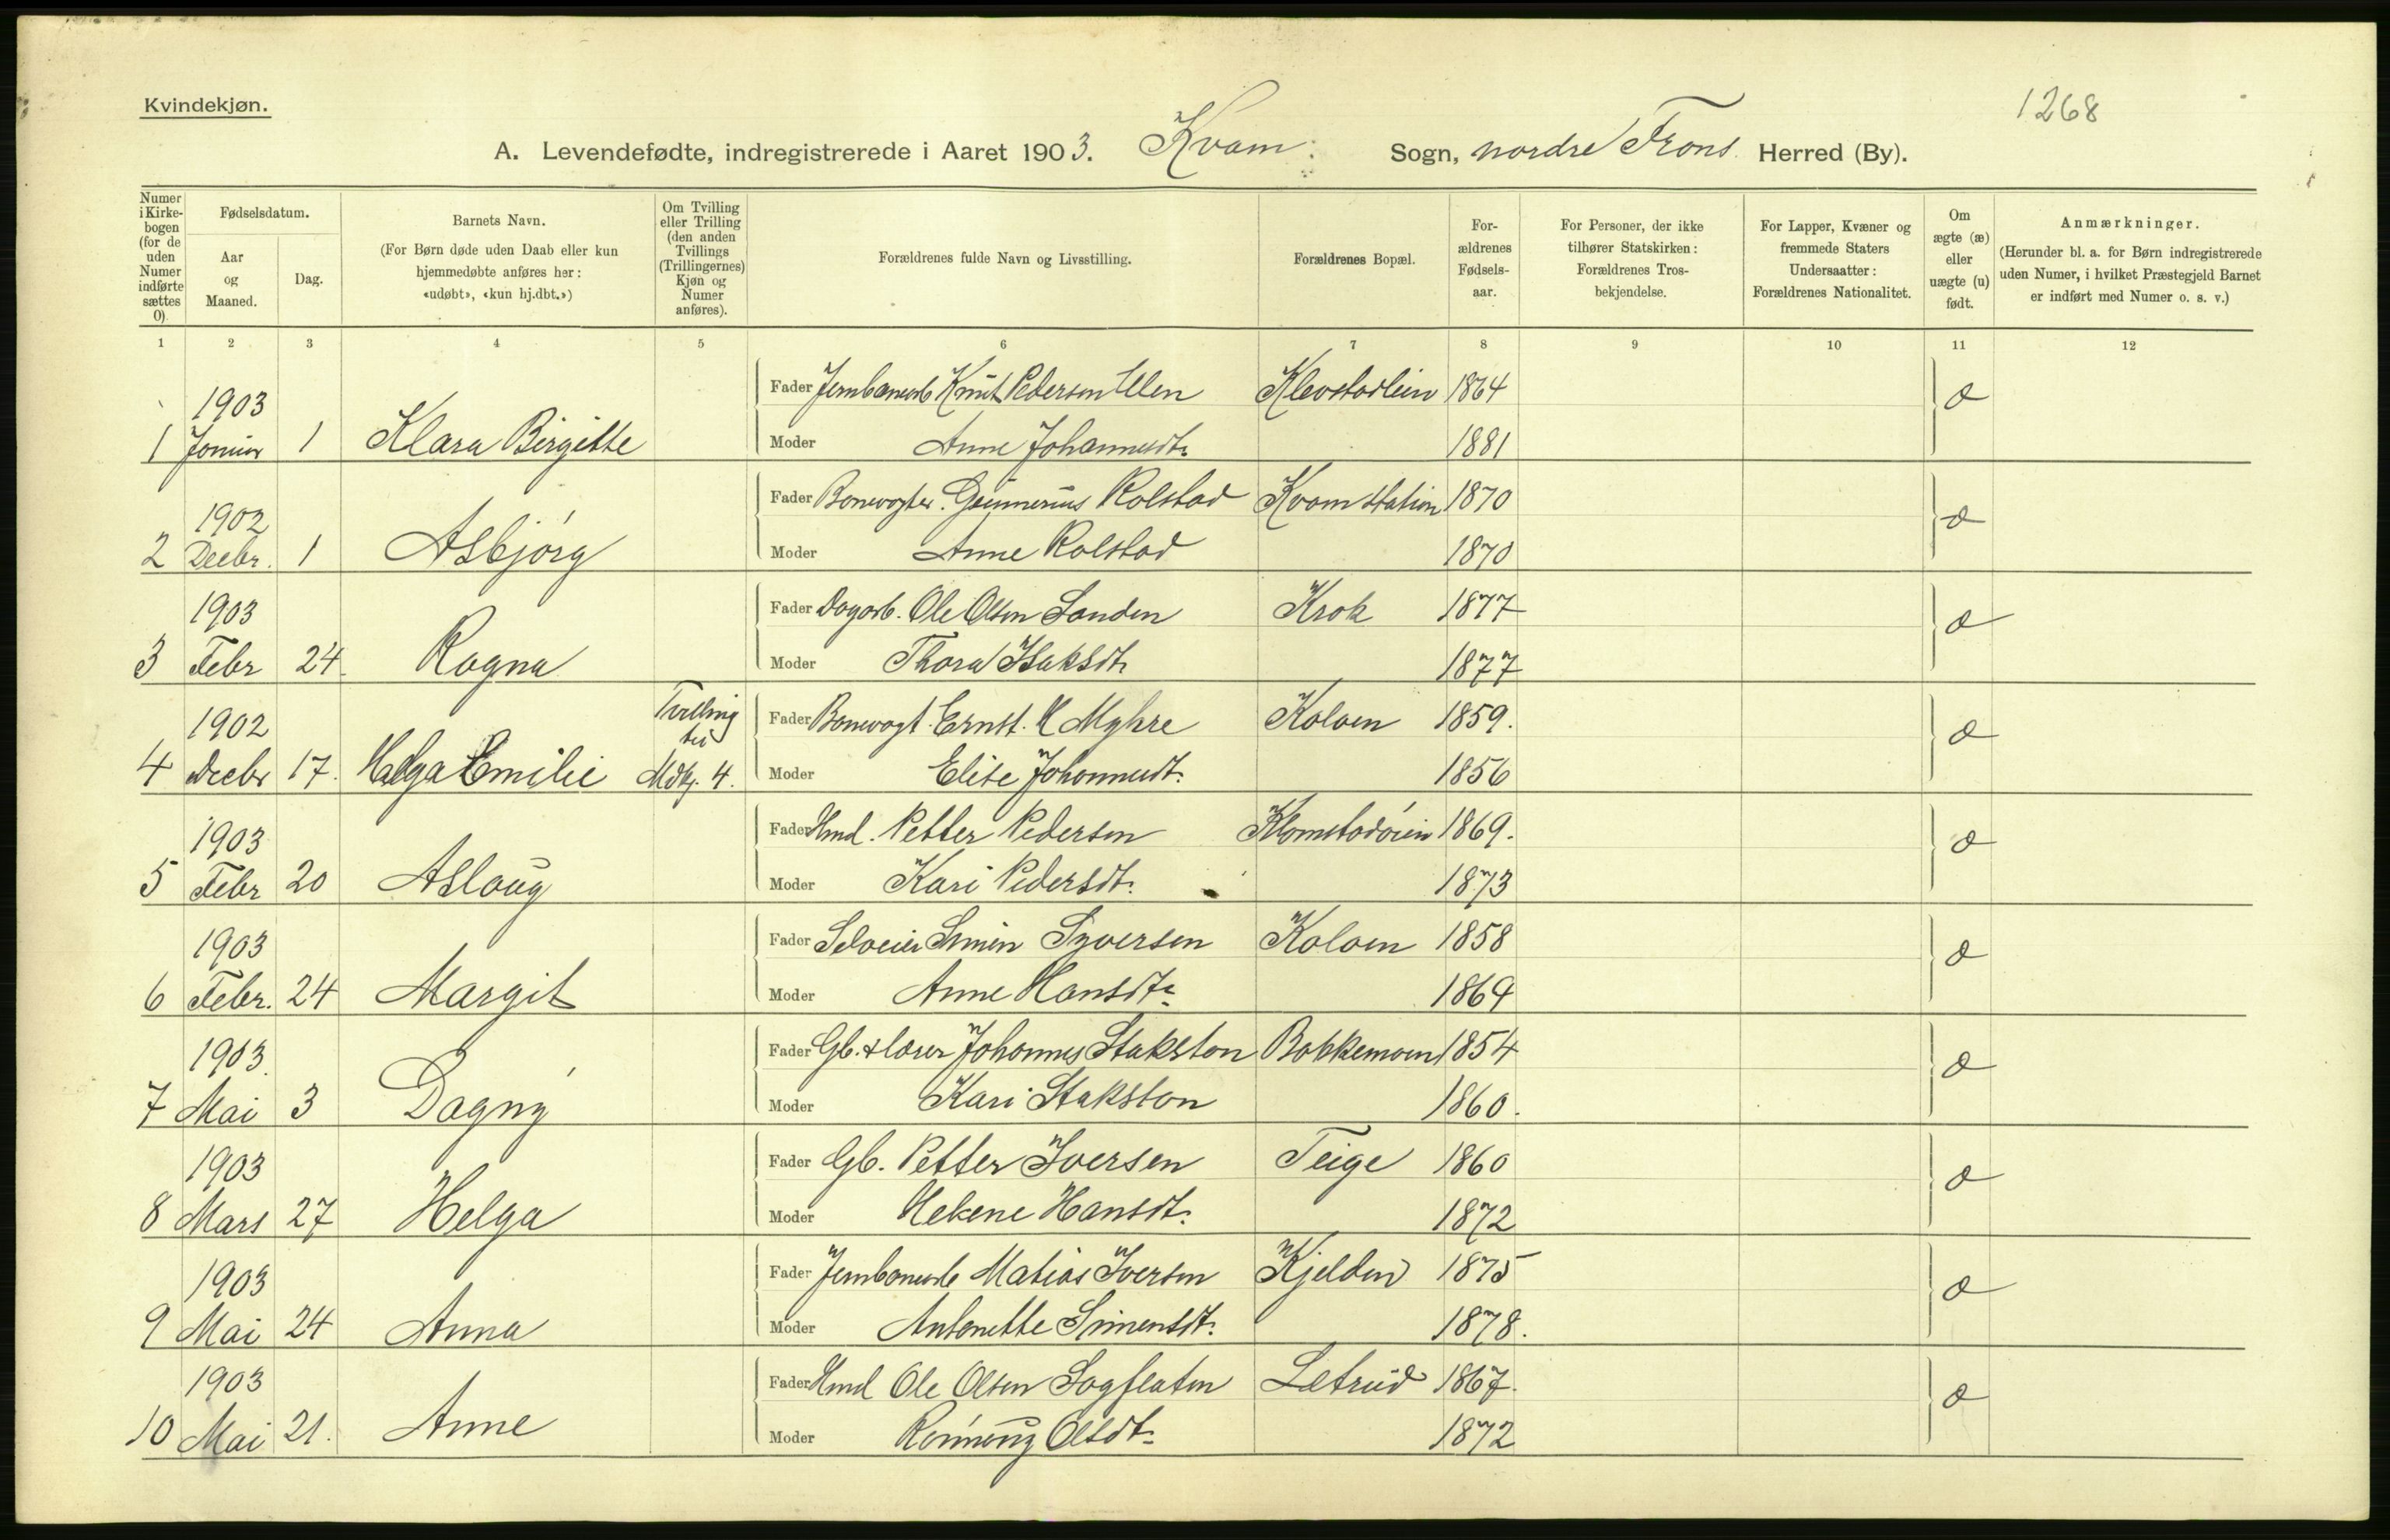 Kvindekjøn.
1268
A. Levendefødte, indregistrerede i Aaret 1903. Kvam Sogn, nordre Frons Herred (By).
Numer i Kirkebogen (for de uden Numer indførte sættes 0).
Fødselsdatum.
Aar og Maaned.
Dag.
Barnets Navn.
(For Børn døde uden Daab eller kun hjemmedøbte anføres her: «udøbt», «kun hj.dbt.»)
Om Tvilling eller Trilling (den anden Tvillings (Trillingernes) Kjøn og Numer anføres).
Forældrenes fulde Navn og Livsstilling.
Forældrenes Bopæl.
Forældrenes Fødselsaar.
For Personer, der ikke tilhører Statskirken: Forældrenes Trosbekjendelse.
For Lapper, Kvæner og fremmede Staters Undersaatter: Forældrenes Nationalitet.
Om ægte (æ) eller uægte (u) født.
Anmærkninger.
(Herunder bl. a. for Børn indregistrerede uden Numer, i hvilket Præstegjeld Barnet er indført med Numer o. s. v.)
1 2 3 4 5 6 7 8 9 10 11 12
1903 Fader Jernbanearb Knut Pedersen Ulen 1864 æ
1 Januar 1 Klara Birgitte Moder Anne Johannesdt. 1881
1902 Fader Banevogter. Gunnerius Rolstad Kvam station 1870 æ
2 Decbr. 1 Asbjórg Moder Anne Rolstad 1870
1903 Fader Dagarb. Ole Olsen Sanden Krok 1877 æ
3 Febr 24. Ragna Moder Thora Isaksdt. 1877
1902 Tvilling til Fader Banevogt. Ernst. M Myhre Koloen 1859. æ
4 Decbr 17. Helga Emilie Mdkj. 4. Moder Elise Johannesdt. 1856
1903 Fader Hmd. Petter Pedersen Klomstadóien 1869. æ
5 Febr 20 Aslaug Moder Kari Pedersdt. 1873
1903 Fader Selveier Simen Syversen Koloen 1858 æ
6 Febr. 24 Margit Moder Anne Hansdt. 1864
1903 Fader Gb. & lærer Johannes Stakston Bakkemoen 1854 æ
7 Mai 3 Dagny Moder Kari Stakston 1860.
1903 Fader Gb. Petter Iversen Teige 1860 æ
8 Mars 27 Helga Moder Helene Hansdt. 1872
1903 Fader Jernbanearb Matias Iversen Kjelden 1875 æ
9 Mai 24 Anna Moder Antonette Simensdt. 1878.
1903 Fader Hmd Ole Olsen Sagflaten Letrud 1867. æ
10 Mai 21. Anne Moder Rónnaug Olsdt. 1872